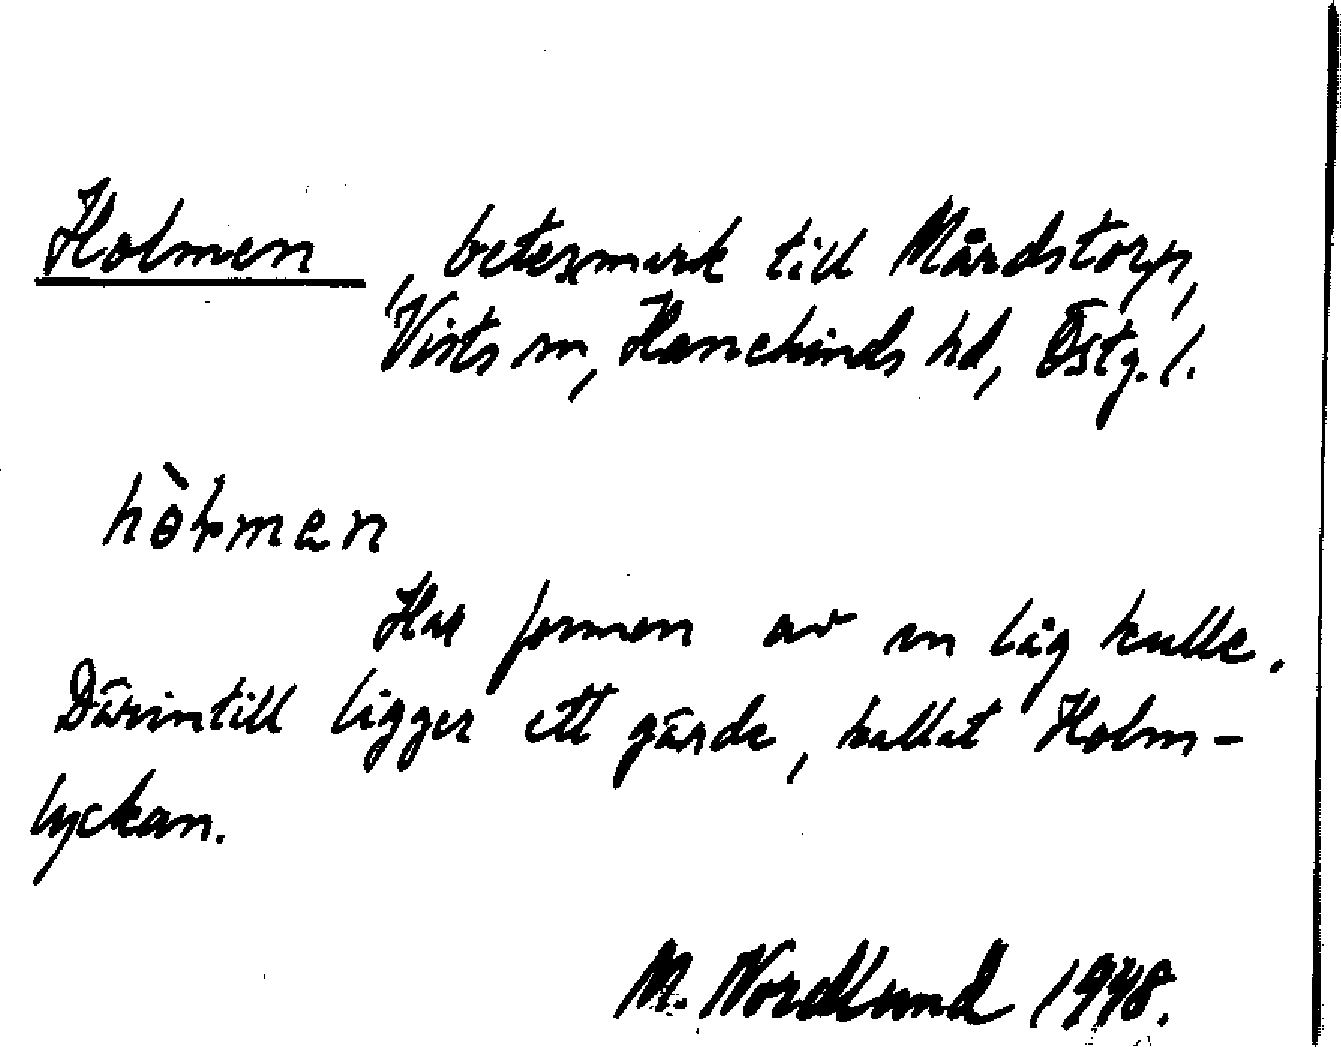 Holmen, betesmark till Mårdstorp,
Vists sn, Hanekinds hd, Östg. l.
hòłmen
Har formen av en låg kulle.
Därintill ligger ett gärde, kallat Holm-
lyckan.
M. Nordlund 1948.